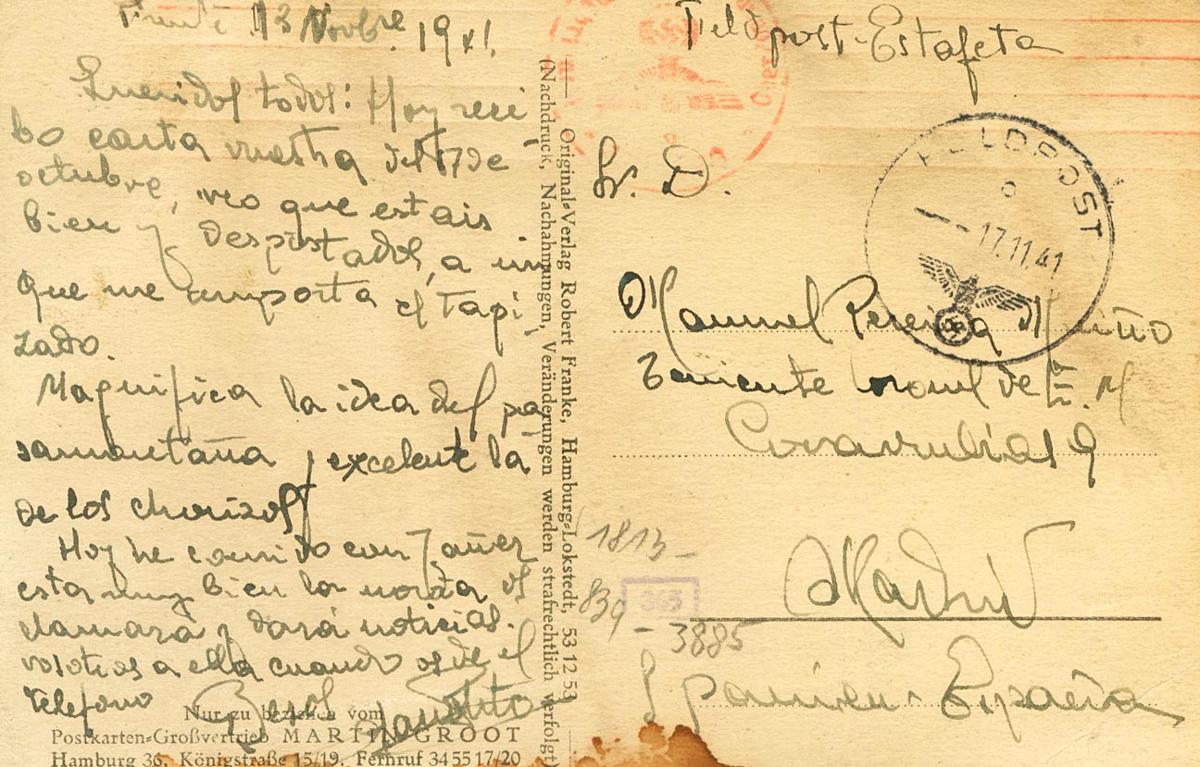 13 Novbre 1941.
Queridos todos: Hoy reci
bo carta vuestra del 17 de
octubre, veo que estais
bien y despistados, a mi
que me importa el tapi
zado.
Magnifica la idea del pa
samontaña y excelente la
de los chorizos
Hoy he comido con
esta muy bien la novia os
llamará y dará noticias.
vosotros a ella cuando os dé el
telefono
Nur zu beziehen vom
Postkarten-Großvertrieb MARTIN GROOT
Hamburg 36, Königstraße 15/19. Fernruf 34 55 17/20
Original-Verlag Robert Franke, Hamburg-Lokstedt, 53 12 53
(Nachdruck, Nachahmungen, Veränderungen werden strafrechtlich verfolgt)
Feldpost-Estafeta
FELDPOST
17.11.41
Sr. D.
Manuel Pereira
Teniente Coronel de E. M
Covarrubias 9
Madrid
Spanien-España
1813-
839
365
- 3885